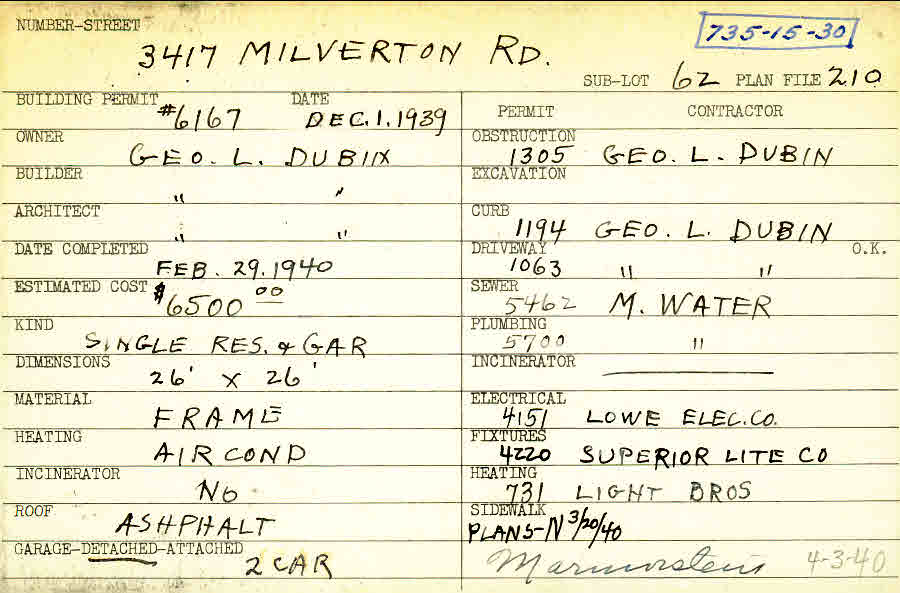 NUMBER-STREET
735-15-30
3417 MILVERTON RD.
SUB-LOT 62 PLAN FILE 210
BUILDING PERMIT DATE
#6167 DEC.1.1939
OWNER
GEO. L. DUBIN
BUILDER
" "
ARCHITECT
" "
DATE COMPLETED
FEB. 29. 1940
ESTIMATED COST
$6500 00
KIND
SINGLE RES. & GAR
DIMENSIONS
26' X 26'
MATERIAL
FRAME
HEATING
AIR COND
INCINERATOR
NO
ROOF
ASHPHALT
GARAGE-DETACHED-ATTACHED
2 CAR
PERMIT CONTRACTOR
OBSTRUCTION
1305 GEO. L. DUBIN
EXCAVATION
CURB
1194 GEO. L. DUBIN
DRIVEWAY O.K.
1063 " "
SEWER
5462 M. WATER
PLUMBING
5700 "
INCINERATOR
ELECTRICAL
4151 LOWE ELEC. CO.
FIXTURES
4220 SUPERIOR LITE CO
HEATING
731 LIGHT BROS
SIDEWALK
PLANS-N 3/20/40
Marmorstein 4-3-40